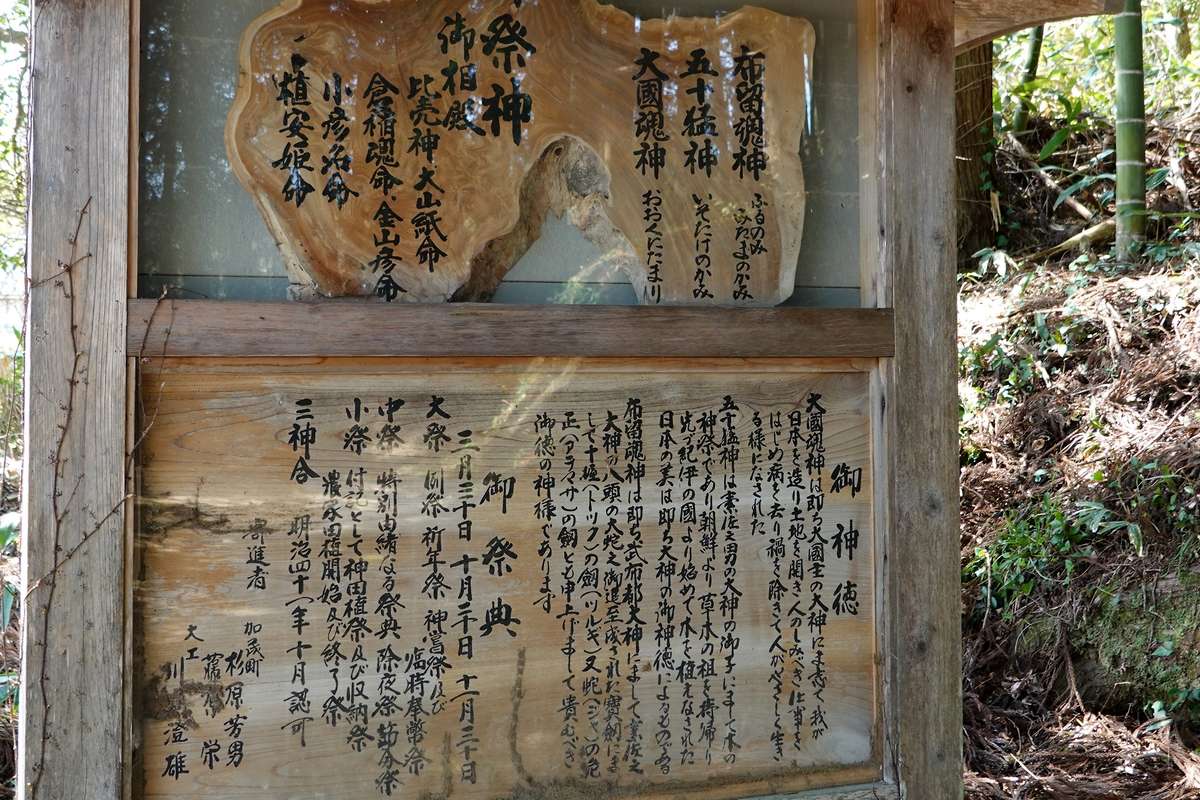 祭神
布留魂神 ふるのみみたまのかみ
五十猛神 いそたけのかみ
大國魂神 おおくにたまり
御相殿
比売神 大山祇命
倉稲魂命、金山彦命
小彦名命
植安姫命
御神徳
大國魂神は即ち大國主の大神にまして我が
日本を造り土地を開き人の
はじめ病を去り禍を除きて人がやさしく生き
る様になされた
五十猛神は素佐之男の大神の御子にまして木の
神祭であり朝鮮より草木の祖を持帰り
先づ紀伊の國より始めて木を植えなされた
日本の美は即ち大神の御神徳によるものである
布留魂神は即ち式布都大神にまして素佐之
大神の八頭の大蛇之御退至成された寶剣にま
して十握(トツブ)の剣(ツルギ)又蛇(ジャ)の
正(アラマサ)の剣とも申上げまして貴むべき
御徳の神様であります
御祭典
三月三十日 十月二十日 十一月二十日
大祭 例祭 祈年祭 神嘗祭及び
臨時奉幣祭
中祭 特別由緒なる祭典 除夜祭 節分祭
小祭 付記として神田植祭及び収納祭
農水田植開始及び終了祭
三神合 明治四十一年十月認可
寄進者
加茂町 杉原芳男
藤原 栄
大工 川 澄雄